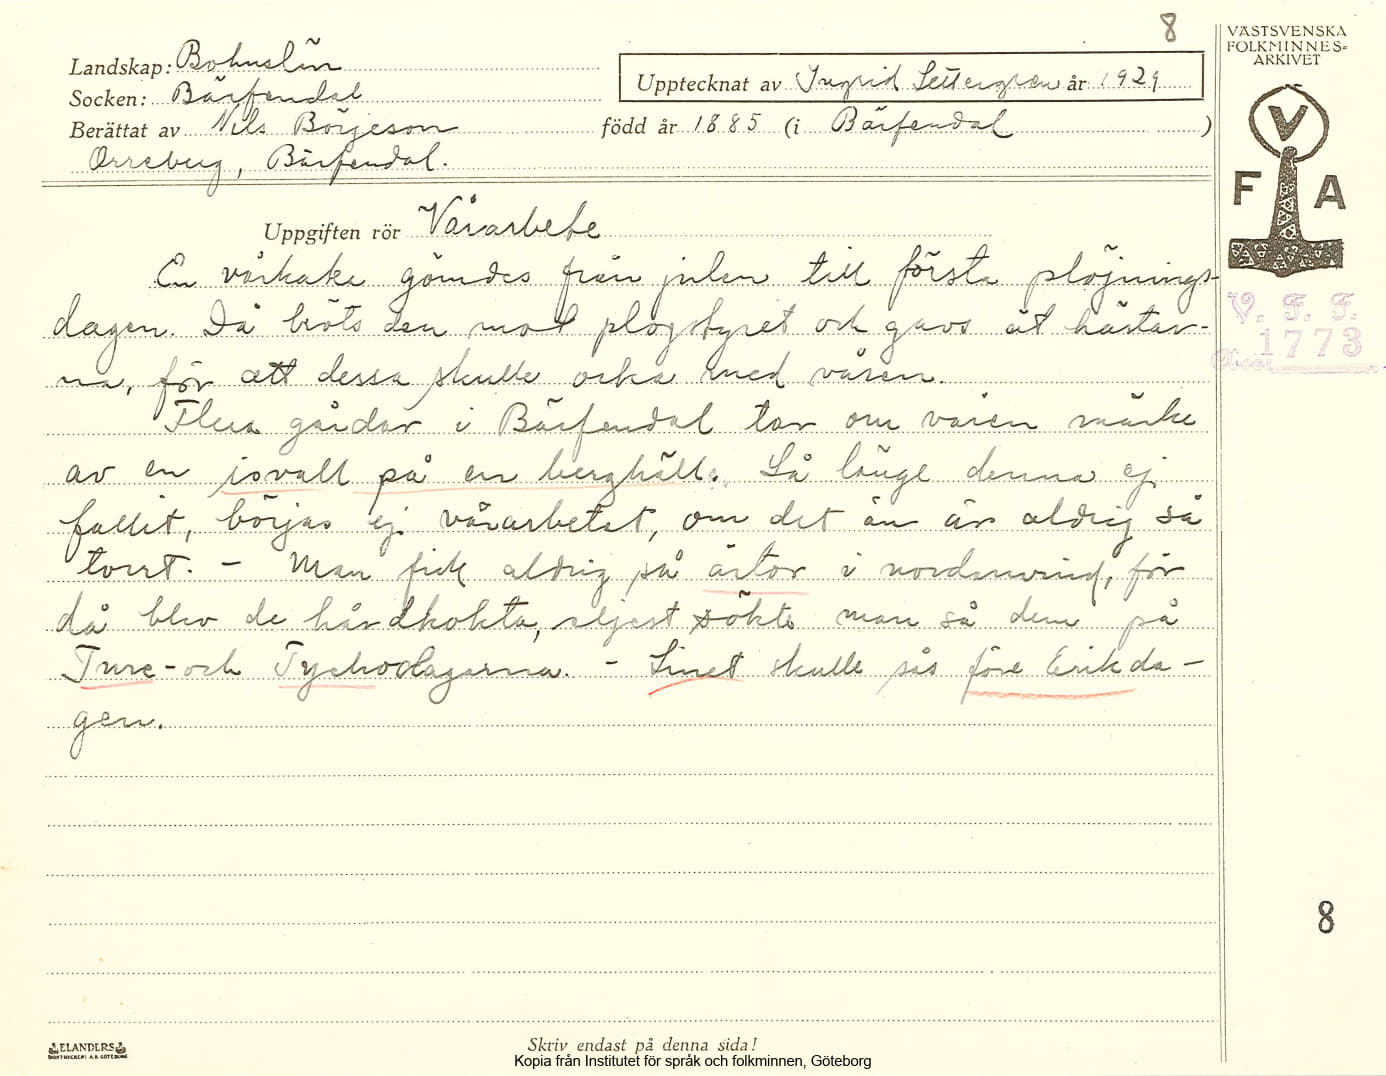 8
VÄSTSVENSKA
FOLKMINNES-
ARKIVET
Landskap: Bohuslän
Socken: Bärfendal
Upptecknat av Ingrid Settergren år 1929
Berättat av Nils Börjeson
född år 1885 (i Bärfendal)
Orreberg, Bärfendal.
V
F A
Uppgiften rör Vårarbete
En vårkaka gömdes från julen till första plöjnings-
dagen. Då bröts den mot plogstyret och gavs åt hästar-
na, för att dessa skulle orka med våren.
Flera gårdar i Bärfendal tar om våren märke
av en isvall på en berghäll. Så länge denna ej
fallit, börjas ej vårarbetet, om det än är aldrig så
torrt. - Man fick aldrig så ärtor i nordanvind, för
då blev de hårdkokta, eljest sökte man så dem på
Ture- och Tychodagarna. - Linet skulle sås före Erikda-
gen.
V. F. F.
1773
8
ELANDERS
BOKTRYCKERI A.B. GÖTEBORG
Skriv endast på denna sida!
Kopia från Institutet för språk och folkminnen, Göteborg